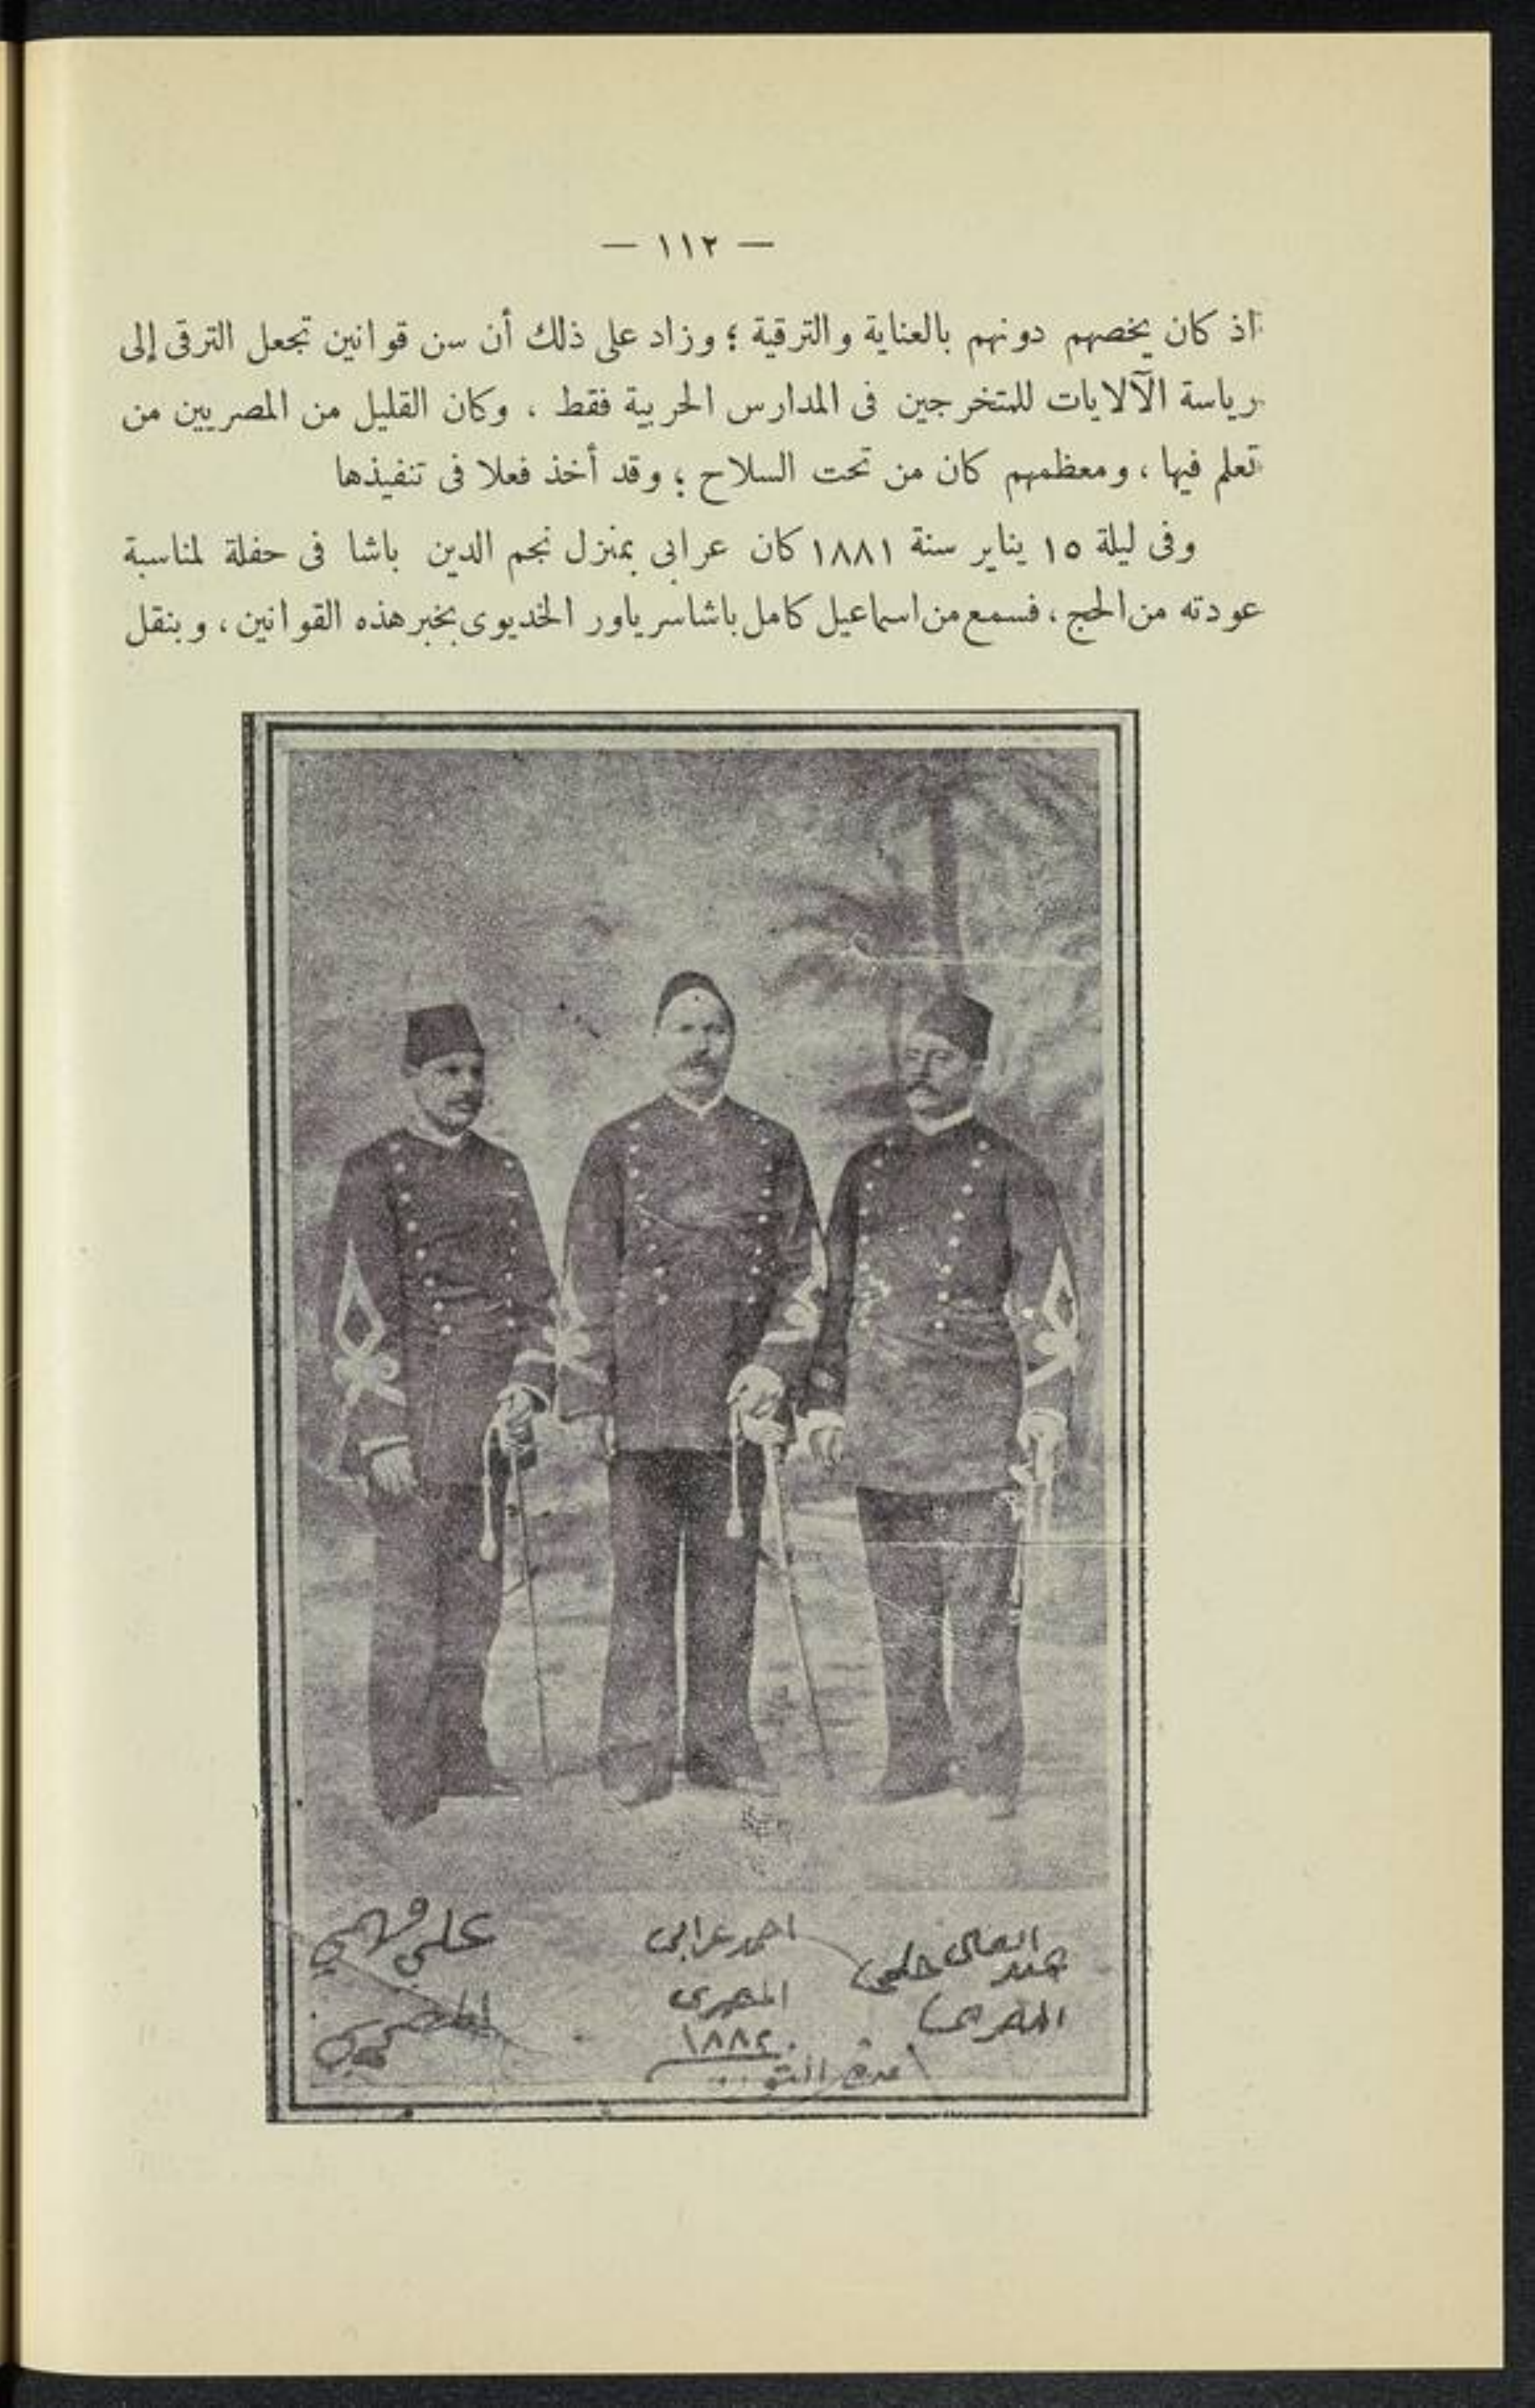 — ١١٢ —
اذ كان يخصهم دونهم بالعناية والترقية ؛ وزاد على ذلك أن سن قوانين تجعل الترقى إلى
رياسة الآلايات للمتخرجين فى المدارس الحربية فقط ، وكان القليل من المصريين من
تعلم فيها ، ومعظمهم كان من تحت السلاح ؛ وقد أخذ فعلا فى تنفيذها
وفى ليلة ١٥ يناير سنة ١٨٨١ كان عرابى بمنزل نجم الدين باشا فى حفلة لمناسبة
عودته من الحج ، فسمع من اسماعيل كامل باشا سرياور الخديوى بخبر هذه القوانين ، وبنقل
عبد العالى حلمى
المصرى
احمد عرابى
المصرى
١٨٨٢
على فهمي
المصري